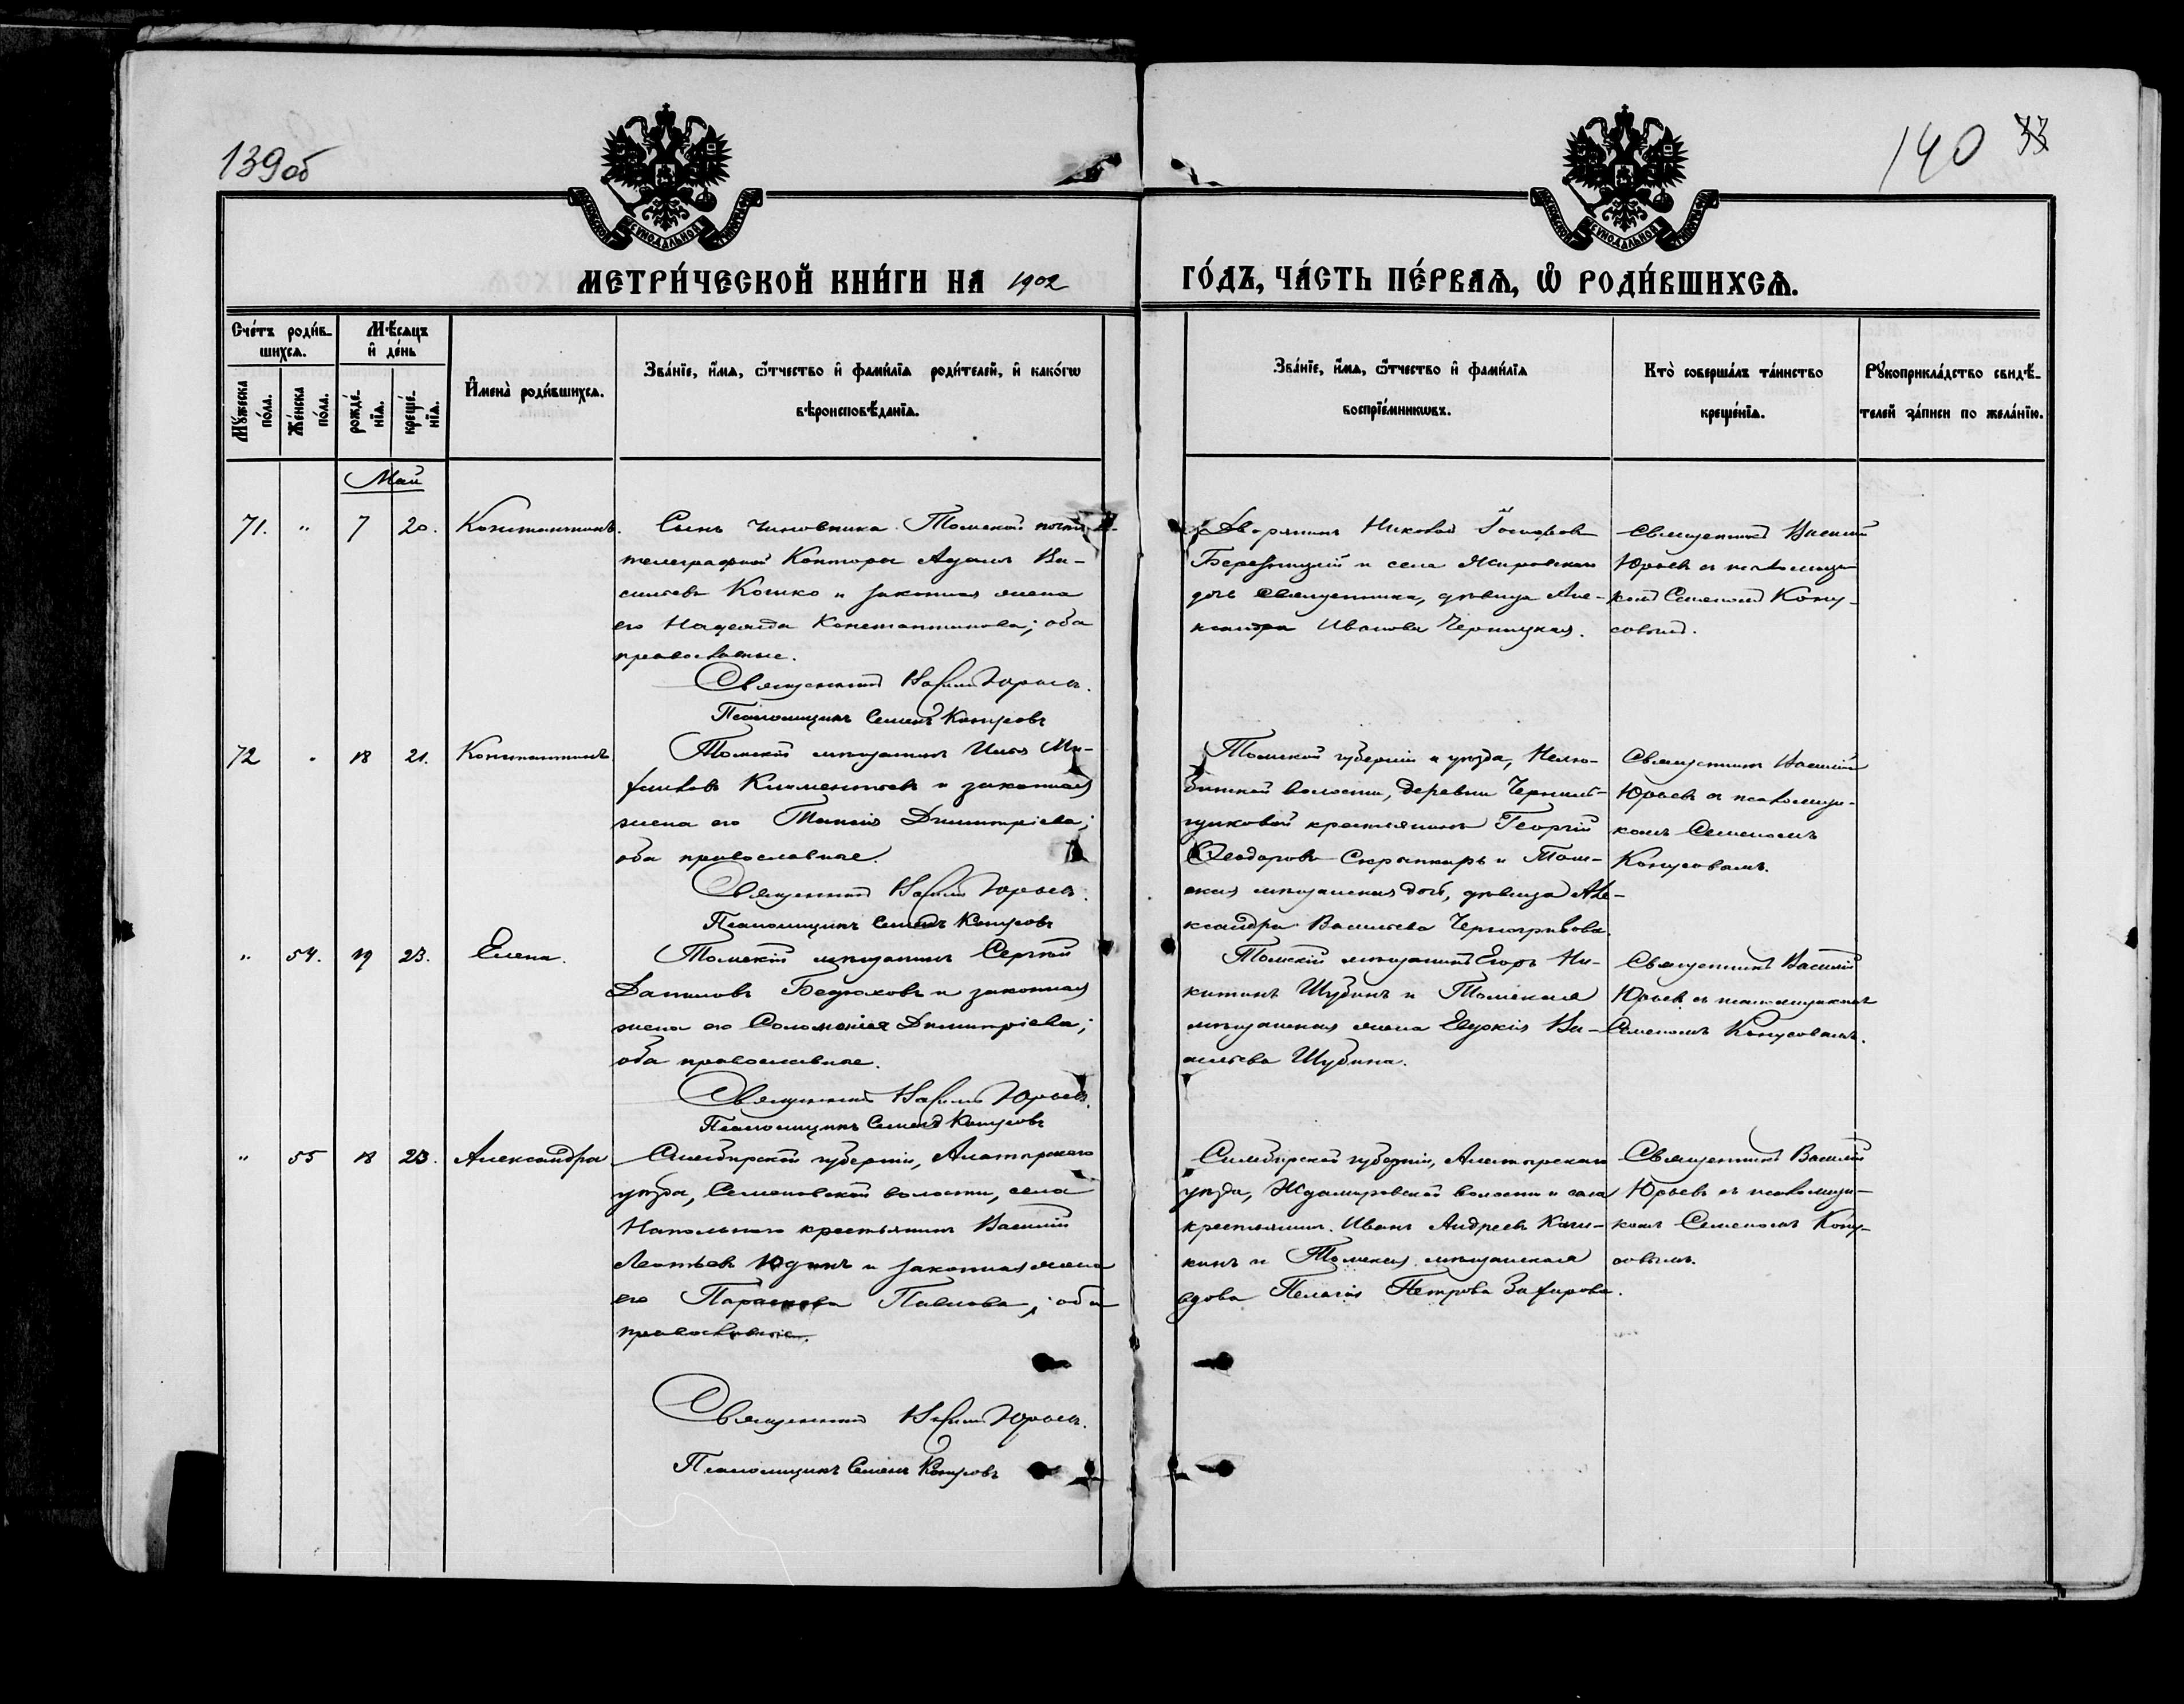 139об
140 33
МЕТРИ́ЧЕСКОЙ КНИ́ГИ НА 1902 ГО́ДЪ, ЧА́СТЬ ПЕ́РВАѦ, Ѡ҆ РОДИ́ВШИХСѦ.
Сче́тъ роди́в-
шихсѧ.
Мꙋ́жеска по́ла.
Же́нска по́ла.
Мѣ́сѧцъ
и҆ де́нь
рожде́-
нїѧ.
креще́-
нїѧ.
И҆мена̀ роди́вшихсѧ.
Зва́нїе, и҆́мѧ, ѻ҆́тчество и҆ фами́лїѧ роди́телей, и҆ како́гѡ
вѣроисповѣ́данїѧ.
Зва́нїе, и҆́мѧ, ѻ҆́тчество и҆ фами́лїѧ
воспрїе́мникѡвъ.
Кто̀ соверша́лъ та́инство
креще́нїѧ.
Рꙋкоприкла́дство свидѣ́-
телей за́писи по жела́нїю.
Май
71. " 7 20. Константинъ.
Сынъ чиновника Томской почто-
телеграфной Конторы Адамъ Ва-
сильевъ Кошко и законная жена
его Надежда Константинова; оба
православные.
Священникъ Василій Юрьевъ.
Псаломщикъ Семенъ Конусовъ
Дворянинъ Николай
и села
дочь священника, дѣвица Але-
ксандра Иванова Черницкая.
Священникъ Василій
Юрьевъ съ псаломщи-
комъ Семеномъ Кону-
совымъ.
72 " 18 21. Константинъ
Томскій мѣщанинъ Илья Ми-
хайловъ Климентьевъ и законная
жена его Таисія Димитріева;
оба православные.
Священникъ Василій Юрьевъ.
Псаломщикъ Семенъ Конусовъ
Томской губерніи и уѣзда, Нелю-
бинской волости, деревни Черниль-
щиковой крестьянинъ Георгій
Ѳеодоровъ и Том-
ская мѣщанская дочь, дѣвица Але-
ксандра Васильева Черногривова.
Священникъ Василій
Юрьевъ съ псаломщи-
комъ Семеномъ
Конусовымъ.
" 54. 19 23. Елена.
Томскій мѣщанинъ Сергій
Даниловъ Бедюховъ и законная
жена его Соломонія Димитріева;
оба православные.
Священникъ Василій Юрьевъ.
Псаломщикъ Семенъ Конусовъ
Томскій мѣщанинъ Егоръ Ни-
китинъ Шубинъ и Томская
мѣщанская жена Евдокія Ва-
сильева Шубина.
Священникъ Василій
Юрьевъ съ псаломщикомъ
Семеномъ Конусовымъ.
" 55 18 23. Александра
Симбирской губерніи, Алатырскаго
уѣзда, Семеновской волости, села
Напольнаго крестьянинъ Василій
Леонтьевъ Юдинъ и законная жена
его Параскева Павлова; оба
православные.
Священникъ Василій Юрьевъ.
Псаломщикъ Семенъ Конусовъ
Симбирской губерніи, Алатырскаго
уѣзда, Ждамировской волости и села
крестьянинъ Иванъ Андреевъ Качи-
кинъ и Томская мѣщанская
вдова Пелагія Петрова Зафирова.
Священникъ Василій
Юрьевъ съ псаломщи-
комъ Семеномъ Кону-
совымъ.